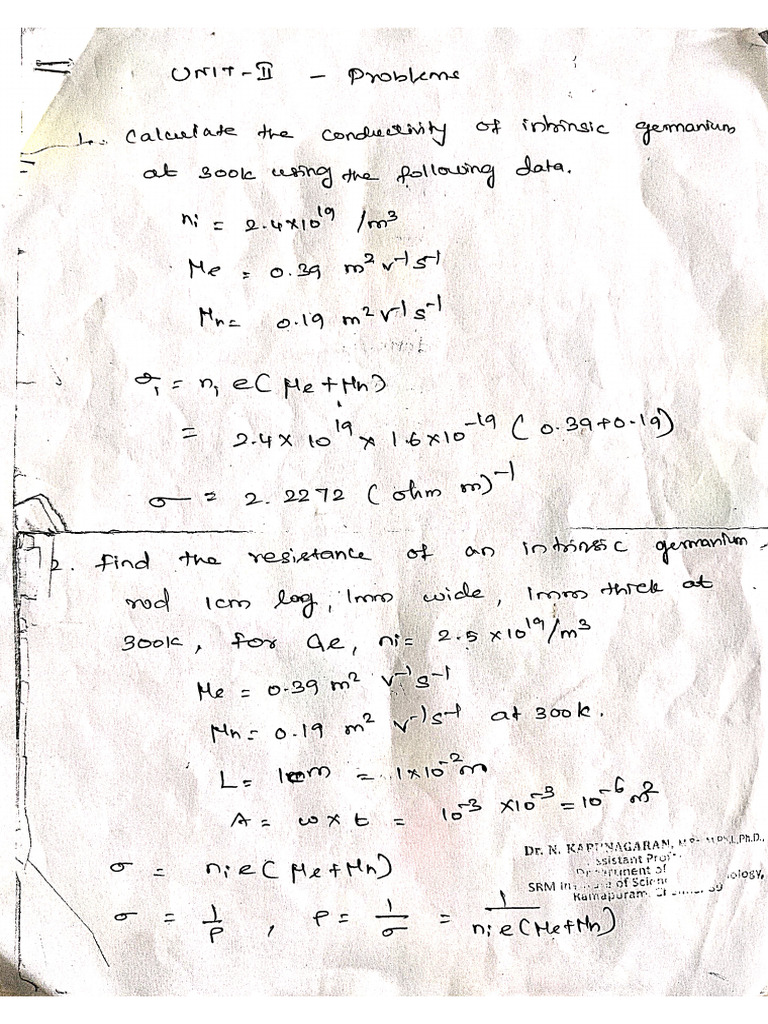 UNIT-II - Problems
1. Calculate the conductivity of intrinsic germanium
at 300K using the following data.
ni = 2.4×10^19 /m^3
Me = 0.39 m^2 v^-1 s^-1
Mn = 0.19 m^2 v^-1 s^-1
σi = ni e( Me + Mn)
= 2.4 × 10^19 × 1.6×10^-19 ( 0.39+0.19)
σ = 2.2272 ( ohm m)^-1
2. Find the resistance of an intrinsic germanium
rod 1cm log, 1mm wide, 1mm thick at
300K, for Ge, ni = 2.5 ×10^19/m^3
Me = 0.39 m^2 v^-1 s^-1
Mn = 0.19 m^2 v^-1 s^-1 at 300K.
L = 1cm = 1×10^-2 m
A = w × t = 10^-3 ×10^-3 = 10^-6 m^2
Dr. N. KARUNAGARAN, Ph.D.,
Assistant
Department of
SRM of
Ramapuram,
σ = ni e ( Me + Mn)
σ = 1/ρ , ρ = 1/σ = 1/ni e (Me+Mn)